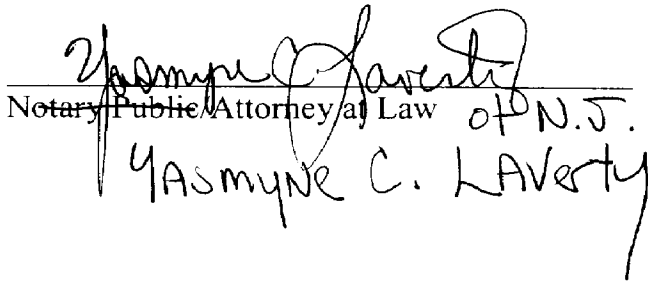 Yasmyne C. Laverty
Notary Public/Attorney at Law of N.J.
YASMYNE C. LAVERTY